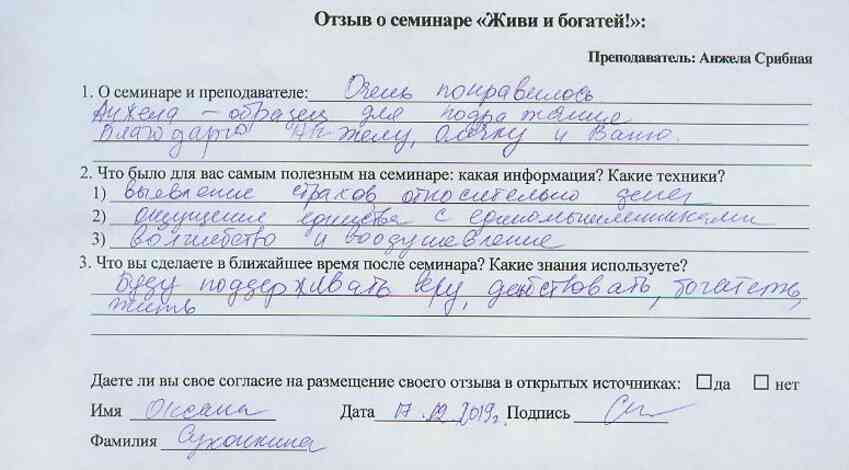 Отзыв о семинаре «Живи и богатей!»:
Преподаватель: Анжела Срибная
1. О семинаре и преподавателе: Очень понравилось
Анжела – образец для подражания
Благодарю Анжелу, Олечку и Ваню.
2. Что было для вас самым полезным на семинаре: какая информация? Какие техники?
1) выявление страхов относительно денег
2) ощущение единства с единомышленниками
3) волшебство и воодушевление
3. Что вы сделаете в ближайшее время после семинара? Какие знания используете?
Буду поддерживать веру, действовать, богатеть,
жить
Даете ли вы свое согласие на размещение своего отзыва в открытых источниках: да нет
Имя Оксана Дата 17.12.2019г. Подпись
Фамилия